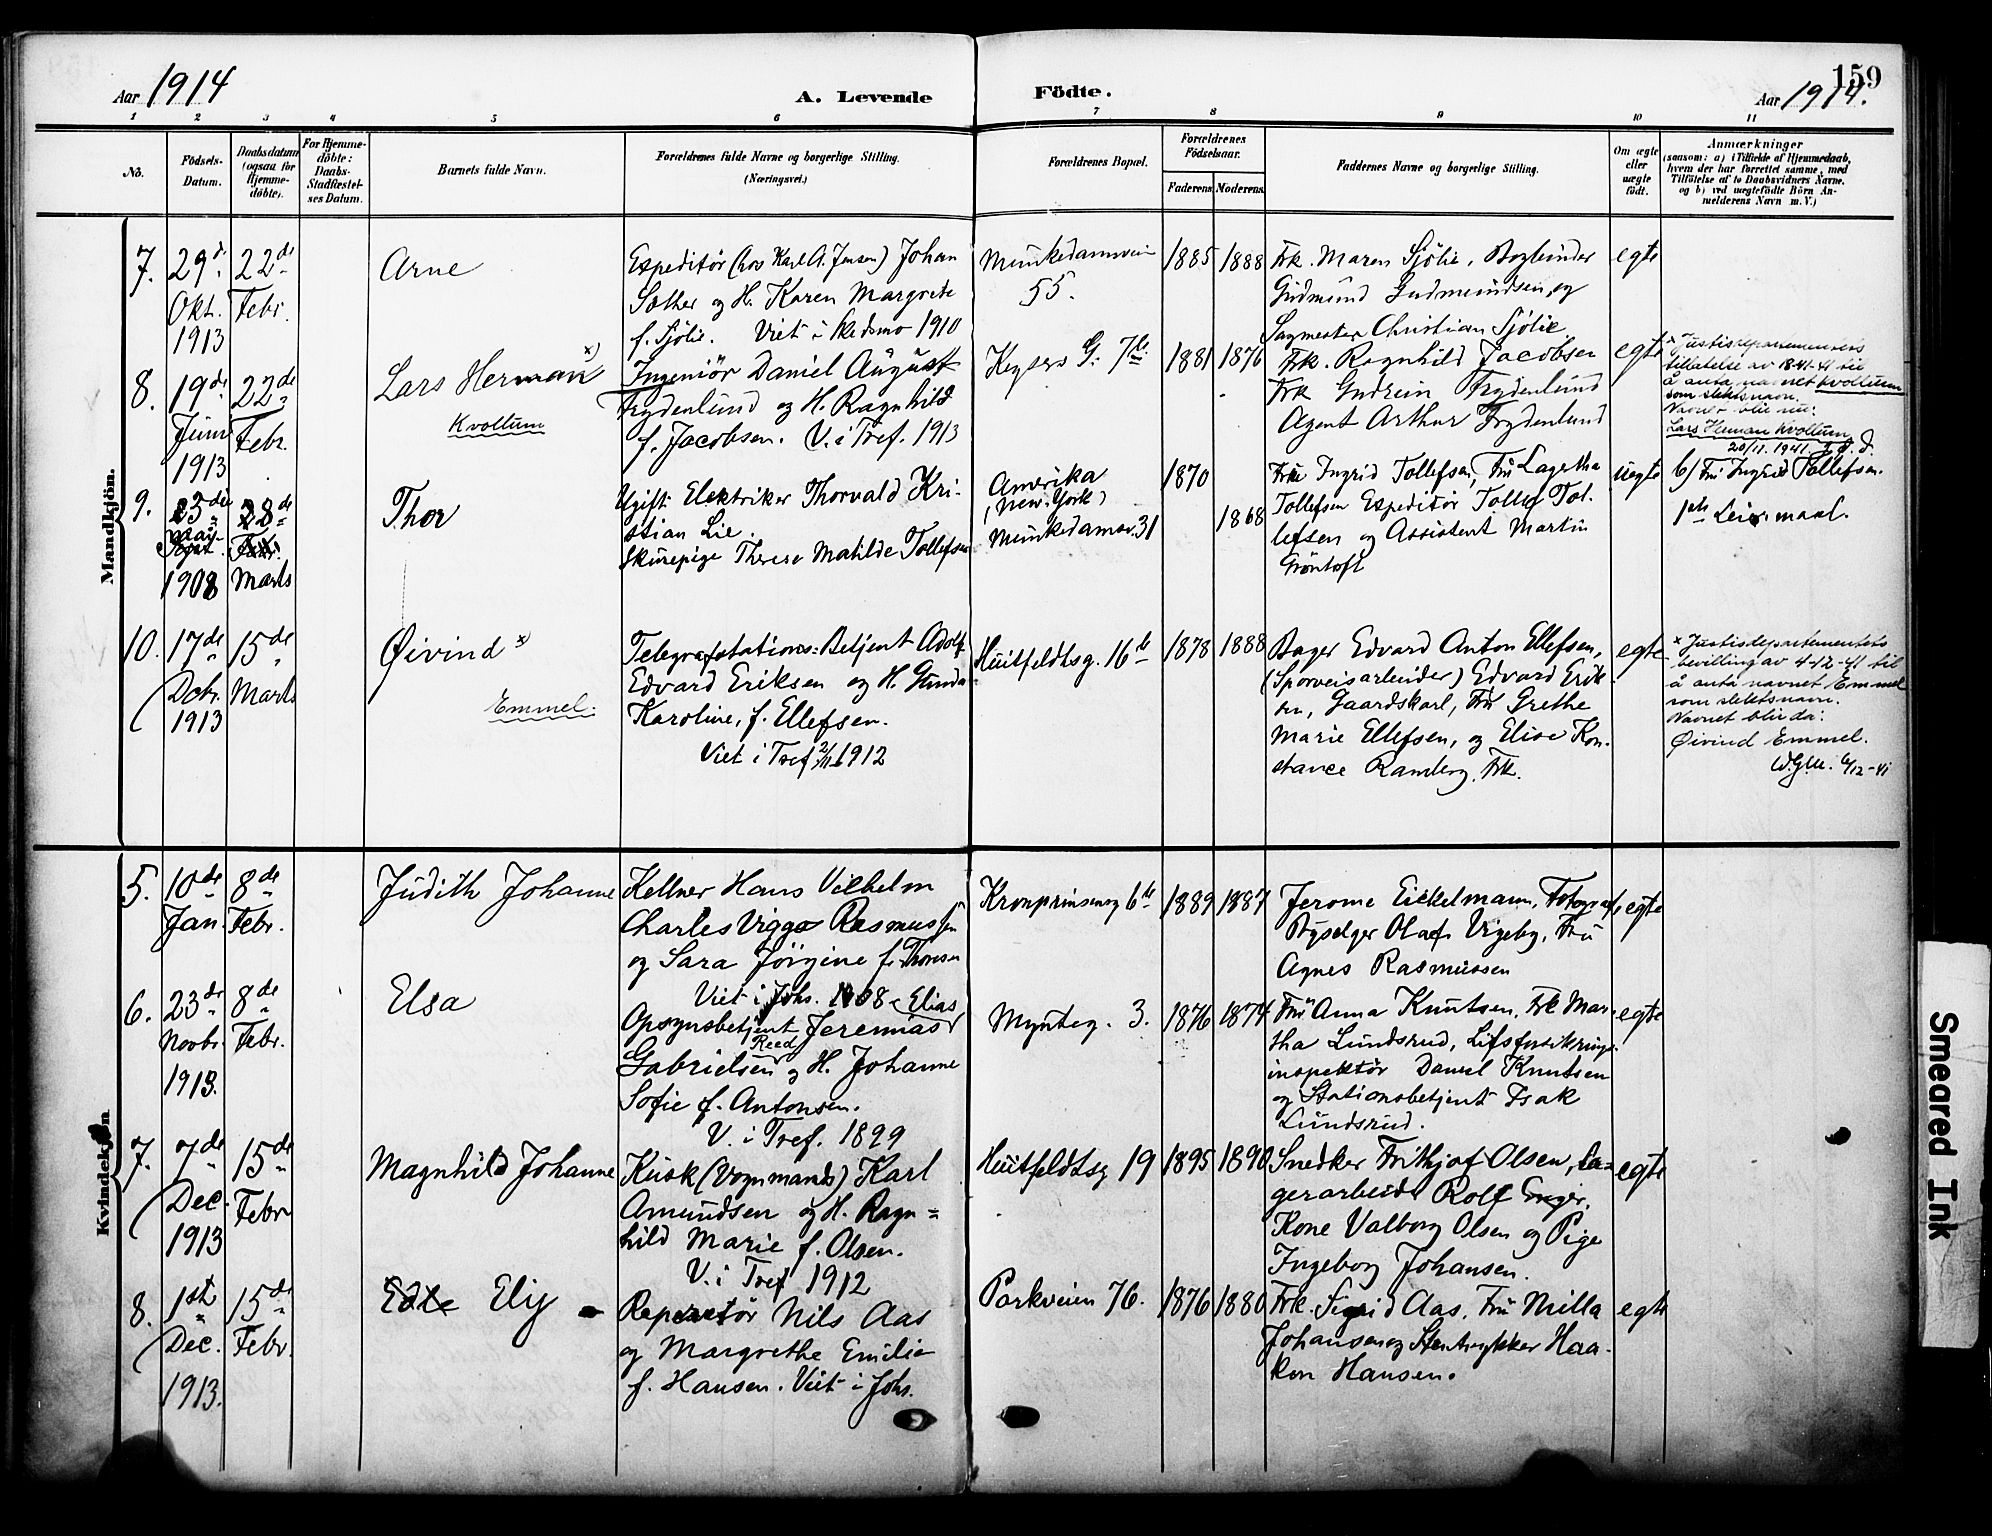 Aar 1914 A. Levende Födte. Aar 1914. 159
1 2 3 4 5 6 7 8 9 10 11
No.
Födsels-Datum.
Daabsdatum (ogsaa for Hjemme-döbte).
For Hjemme-döbte: Daabs-Stadfæstel-ses Datum.
Barnets fulde Navn.
Forældrenes fulde Navne og borgerlige Stilling.
(Næringsvei.)
Forældrenes Bopæl.
Forældrenes Födselsaar.
Faderens Moderens
Faddernes Navne og borgerlige Stilling.
Om ægte eller uægte födt.
Anmærkninger
(saasom: a) i Tilfælde af Hjemmedaab,
hvem der har forrettet samme, med
Tilföielse af to Daabsvidners Navne,
og b) ved uægtefödte Börn An-
melderens Navn m. V.)
Mandkjön.
7. 29de Okt. 1913
22de Febr.
Arne
Expeditör (hos Karl A. Jensen) Johan
Sæther og H. Karen Margrete
f. Sjölie. Viet i Skedsmo 1910
Munkedamsvein
55.
1885 1888
Frk. Maren Sjölie, Bogbinder
Gudmund Gudmundsen, og
Sagmester Christian Sjölie
egte
8. 19de Juni 1913
22de Febr.
Lars Herman x)
Kvollum
Ingeniör Daniel August
Frydenlund og H. Ragnhild
f. Jacobsen. V. i Tref. 1913
Keysers G. 7b.
1881 1876
Frk. Ragnhild Jacobsen
Frk Gudrun Frydenlund
Agent Arthur Frydenlund
egte
x Justisdepartementets
tillatelse av 18-11-41 til
å anta navnet Kvollum
som slektsnavn.
Navnet blir nu:
Lars Herman Kvollum
20/11. 1941.
9. 23de Mai 1908
28de Marts
Thor
Ugift Elektriker Thorvald Kri-
stian Lie.
Skurepige Therese Matilde Tollefsen
Amerika
(New-York)
Munkedamsv. 31
1870
1868
Frk Ingrid Tollefsen, Fru Lagetha
Tollefsen Expeditör Tollef Tol-
lefsen og Assistent Martin
Gröntoft
uegte
b/ Fru Ingrid Tollefsen.
1ste Leiermaal.
10. 17de Octr. 1913
15de Marts
Øivind x)
Emmel.
Telegrafstations-Betjent Adolf
Edvard Eriksen og H. Gunda
Karoline, f. Ellefsen.
Viet i Tref 2/11 1912
Huitfeldtsg. 16b
1878 1888
Bager Edvard Anton Ellefsen,
(Sporveisarbeider) Edvard Erik-
sen, Gaardskarl, Fru Grethe
Marie Ellefsen, og Elise Kon-
stance Ramberg, Frk.
egte
x Justisdepartementets
bevilling av 4-12-41 til
å anta navnet Emmel
som slektsnavn.
Navnet blir da:
Øivind Emmel.
Kvindekjön
5. 10de Jan.
8de Febr.
Judith Johanne
Kellner Hans Vilhelm
Charles Viggo Rasmussen
og Sara Jörgine f. Thoresen
Viet i Johs. 1908
Kronprinsensg 6b
1889 1887
Jerome Eickelmann, Fotograf,
Bysælger Olaf Vigeby, Fru
Agnes Rasmussen
egte
6. 23de Novbr. 1913.
8de Febr.
Elsa
Opsynsbetjent Jeremias Elias
Gabrielsen Reed og H. Johanne
Sofie f. Antonsen.
V. i Tref. 1899
Mynteg. 3.
1876 1874
Fru Anna Knutsen, Frk Mar-
tha Lundsrud, Lifsforsikrings-
inspektör Daniel Knutsen
og Stationsbetjent Isak
Lundsrud.
egte
7. 7de Dec. 1913
15de Febr
Magnhild Johanne
Kusk (Vognmands) Karl
Amundsen og H. Ragn-
hild Marie f. Olsen.
V. i Tref 1912
Huitfeldtsg 19
1895 1890
Snedker Frithjof Olsen, La-
gerarbeider Rolf Enger,
Kone Valborg Olsen og Pige
Ingeborg Johansen.
egte
8. 1st Dec. 1913.
15de Febr.
Elly
Reparatör Nils Aas
og Margrethe Emilie
f. Hansen. Viet i Johs.
Parkveien 76.
1876 1880
Frk. Sigrid Aas, Fru Milla
Johansen og Stentrykker Haa-
kon Hansen.
egte
Smeared Ink